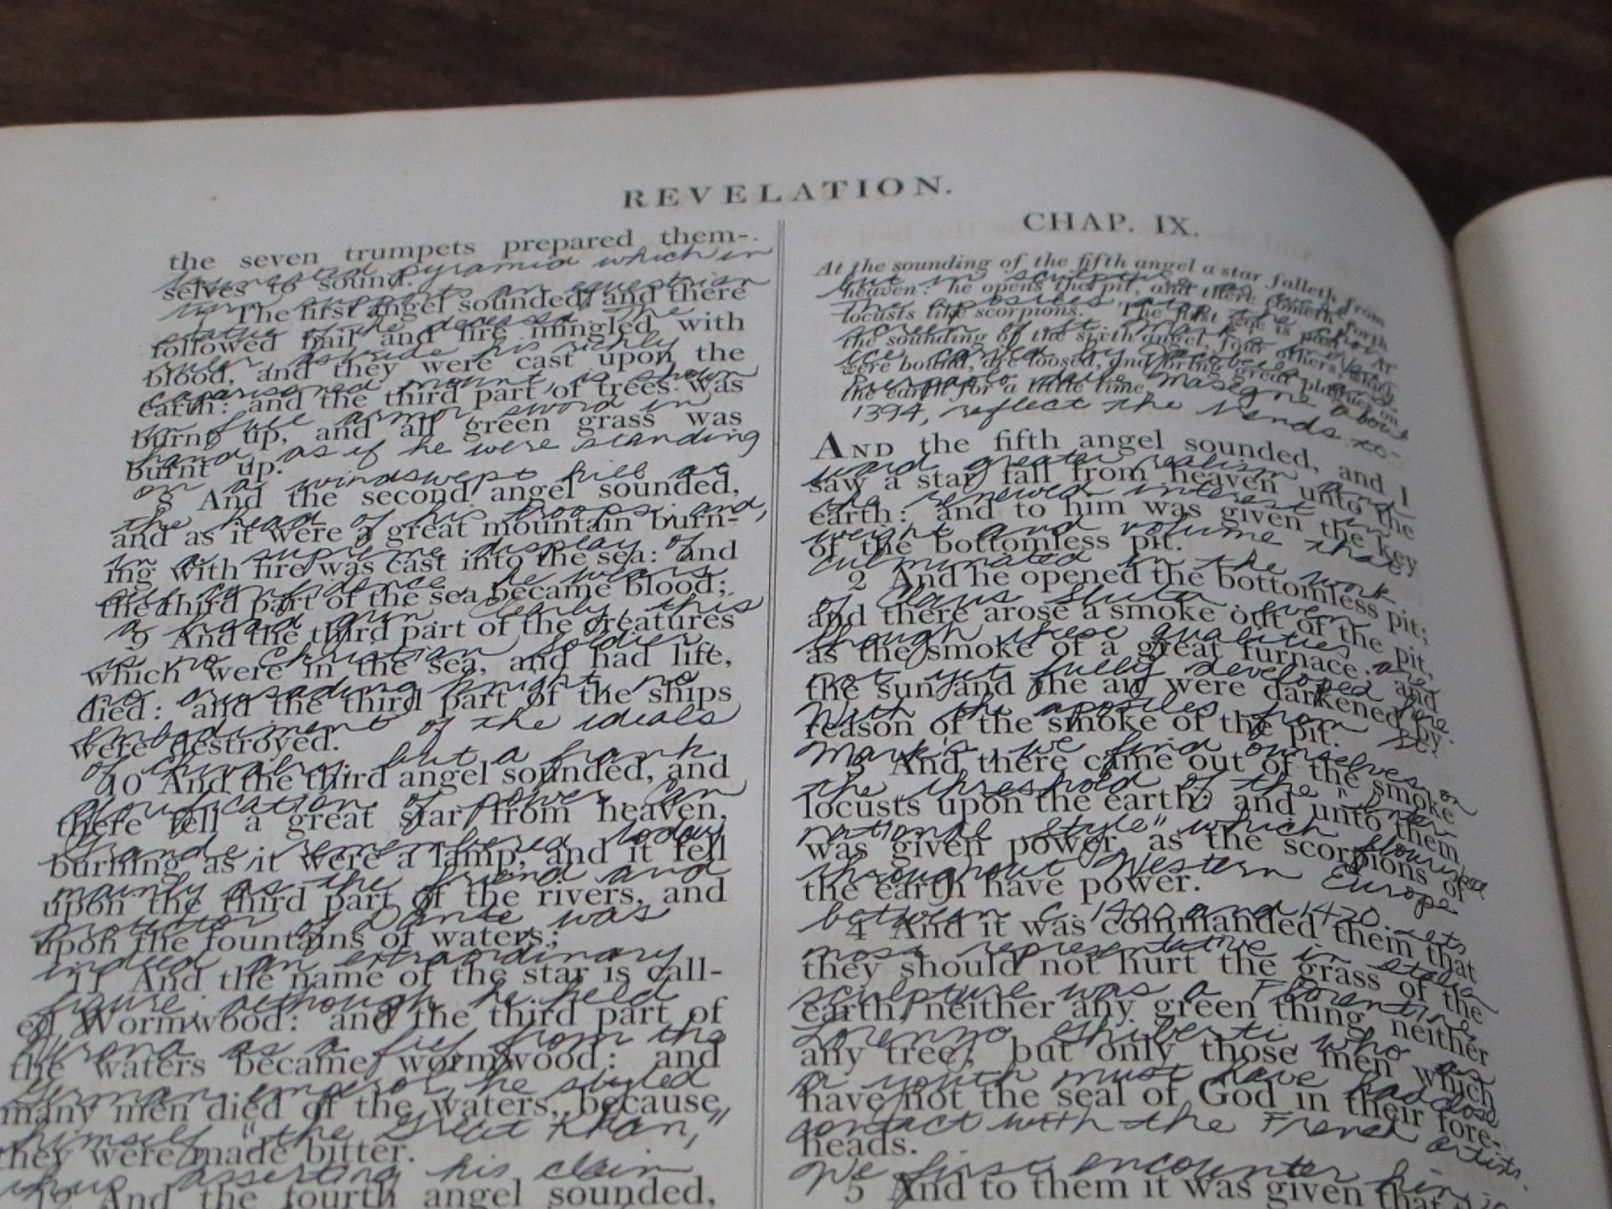 REVELATION.
the seven trumpets prepared them-
truncated pyramid which in
selves to sound.
turn supports an equestrian
The first angel sounded, and there
statue of the deceased. The
followed hail and fire mingled with
ruler astride his richly
blood, and they were cast upon the
caparisoned mount is shown
earth: and the third part of trees was
in full armor sword in
burnt up, and all green grass was
hand, as if he were standing
burnt up.
on a windswept hill at
8 And the second angel sounded,
the head of his troops; and,
and as it were a great mountain burn-
in a supreme display of
ing with fire was cast into the sea: and
self confidence, he wears
the third part of the sea became blood;
a broad grin. Clearly, this
9 And the third part of the creatures
is no Christian Soldier,
which were in the sea, and had life,
no crusading knight, no
died: and the third part of the ships
embodiment of the ideals
were destroyed.
of chivalry, but a frank
10 And the third angel sounded, and
glorification of power. Can
there fell a great star from heaven,
Grande, remembered today
burning as it were a lamp, and it fell
mainly as the friend and
upon the third part of the rivers, and
protector of Dante was
upon the fountains of waters;
indeed an extraordinary
11 And the name of the star is call-
figure; although he held
ed Wormwood: and the third part of
Verona as a fief from the
the waters became wormwood: and
German emperor, he styled
many men died of the waters, because
himself "the Great Khan,"
they were made bitter.
thus asserting his claim
12 And the fourth angel sounded,
CHAP. IX.
At the sounding of the fifth angel a star falleth from
but in sculpture as well.
heaven: he opens the pit, and there cometh forth
The apostles atop the choir
locusts like scorpions. The first woe is past. At
screen of St. Mark's, Ven-
the sounding of the sixth angel, four others, which
ice, carved by Jacobello and
were bound, are loosed, and bring great plagues on
Pierpaolo dalle Masegne about
the earth for a little time.
1394, reflect the trends to-
AND the fifth angel sounded, and I
ward greater realism and
saw a star fall from heaven unto the
the renewed interest in
earth: and to him was given the key
weight and volume that
of the bottomless pit.
culminated in the work
2 And he opened the bottomless pit;
of Claus Sluter, even
and there arose a smoke out of the pit,
though these qualities are
as the smoke of a great furnace: and
not yet fully developed here.
the sun and the air were darkened by
With the apostles from St.
reason of the smoke of the pit.
Mark's, we find ourselves on
3 And there came out of the smoke
the threshold of the "Inter-
locusts upon the earth; and unto them
national style" which flourished
was given power, as the scorpions of
throughout Western Europe
the earth have power.
between c. 1400 and 1420. Its
4 And it was commanded them that
most representative in Italian
they should not hurt the grass of the
sculpture was a Florentine,
earth, neither any green thing, neither
Lorenzo Ghiberti, who as
any tree; but only those men which
a youth must have had close
have not the seal of God in their fore-
contact with the French artists.
heads.
We first encounter him in
5 And to them it was given that